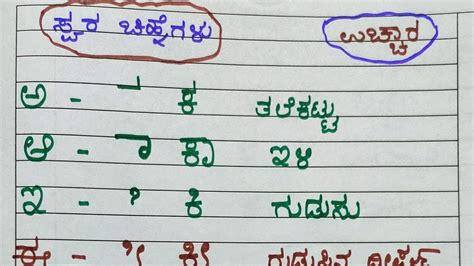 ಸ್ವರ ಚಿಹ್ನೆಗಳು ಉಚ್ಚಾರ
ಅ - ಕ ತಲೆಕಟ್ಟು
ಆ - ಾ ಕಾ ಇಳಿ
ಇ - ಿ ಕಿ ಗುಡುಸು
ಈ - ೀ ಕೀ ಗುಡುಸಿನ